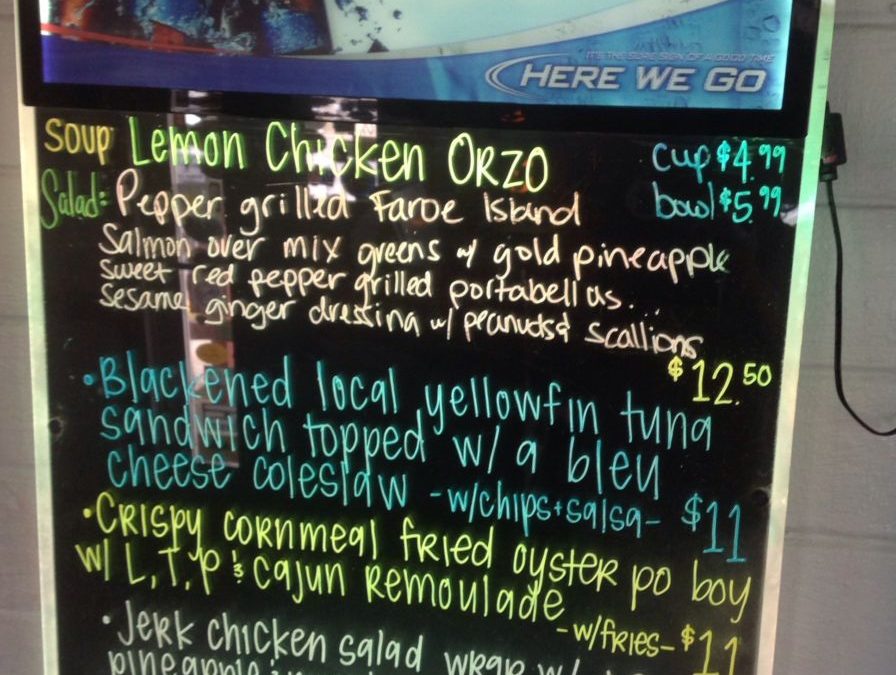 IT'S THE SURE SIGN OF A GOOD TIME
HERE WE GO
Soup Lemon Chicken Orzo cup $4.99
bowl $5.99
Salad: Pepper grilled Faroe Island
Salmon over mix greens w/ gold pineapple
sweet red pepper grilled portabellas...
Sesame ginger dressing w/ peanuts & scallions
$12.50
• Blackened local yellowfin tuna
sandwich topped w/ a bleu
cheese coleslaw - w/chips+salsa- $11
• Crispy cornmeal fried oyster po boy
w/ L,T,P & cajun remoulade
-w/fries- $11
• Jerk chicken salad wrap w/
pineapple